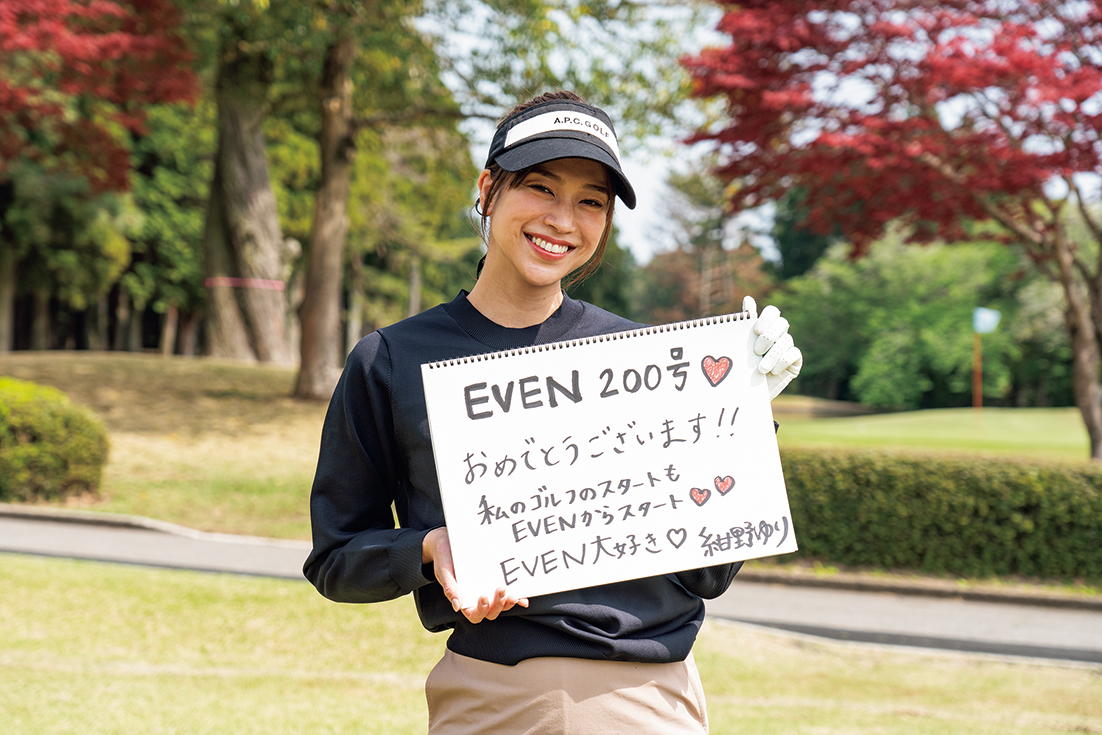 A.P.C. GOLF
EVEN 200号
おめでとうございます!!
私のゴルフのスタートも
EVENからスタート
EVEN大好き♡ 紺野ゆり